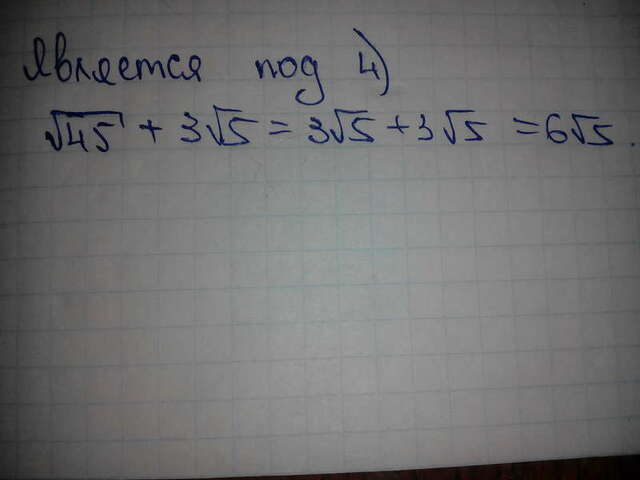 Является под 4)
√45 + 3√5 = 3√5 + 3√5 = 6√5.